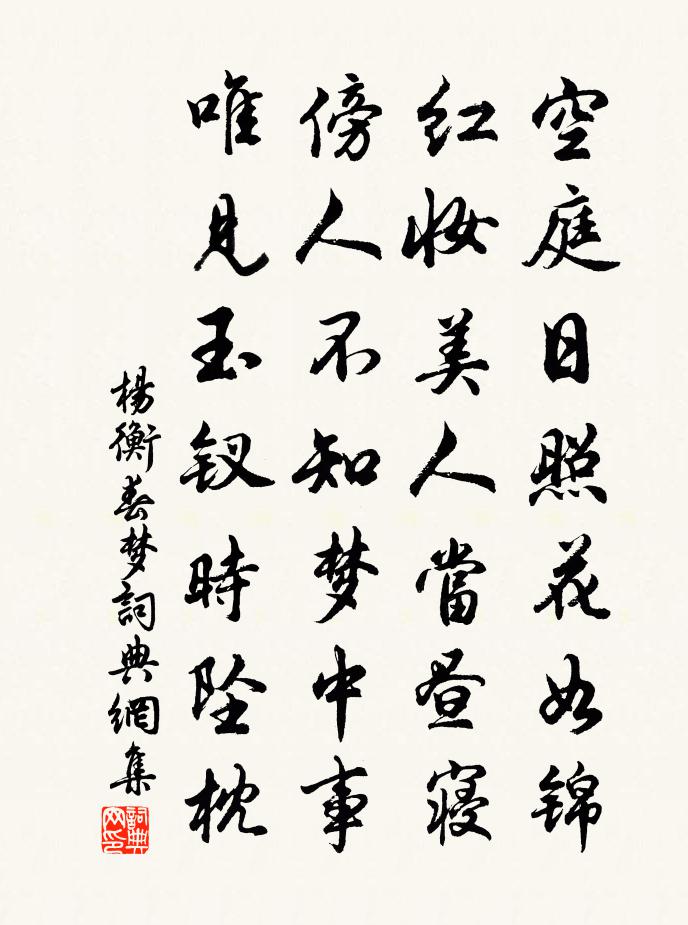 空庭日照花如锦
红妝美人當昼寝
傍人不知梦中事
唯見玉钗時坠枕
楊衡春梦詞典網集
詞典
网印